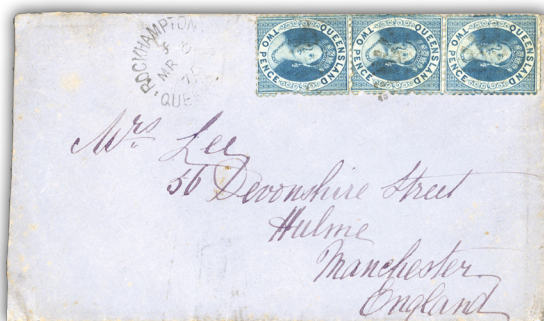 ROCKHAMPTON
MR
QUE
QUEENSLAND
TWO PENCE
QUEENSLAND
TWO PENCE
QUEENSLAND
TWO PENCE
Mrs Lee
56 Devonshire Street
Hulme
Manchester
England